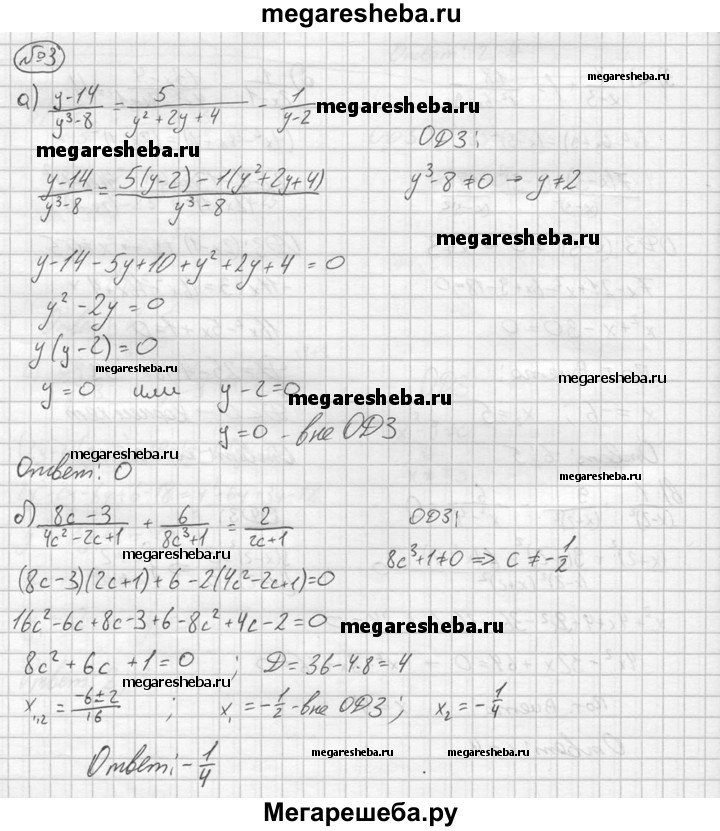 megaresheba.ru
№3
megaresheba.ru
а) (y-14)/(y³-8) = 5/(y²+2y+4) - 1/(y-2) megaresheba.ru
ОДЗ:
megaresheba.ru
(y-14)/(y³-8) = (5(y-2) - 1(y²+2y+4))/(y³-8) y³-8≠0 → y≠2
megaresheba.ru
y-14-5y+10+y²+2y+4 = 0
y²-2y=0
y(y-2)=0
megaresheba.ru
megaresheba.ru
y=0 или y-2=0
megaresheba.ru
y=0 - вне ОДЗ
megaresheba.ru
Ответ: 0
megaresheba.ru
б) (8c-3)/(4c²-2c+1) + 6/(8c³+1) = 2/(2c+1) ОДЗ:
megaresheba.ru
8c³+1≠0 ⇒ c≠-1/2
(8c-3)(2c+1)+6-2(4c²-2c+1)=0
16c²-6c+8c-3+6-8c²+4c-2=0
megaresheba.ru
8c²+6c +1=0 ; D=36-4·8=4
megaresheba.ru
x₁,₂ = (-6±2)/16 ; x₁ = -1/2 - вне ОДЗ; x₂ = -1/4
megaresheba.ru
megaresheba.ru
Ответ: -1/4
Мегарешеба.ру